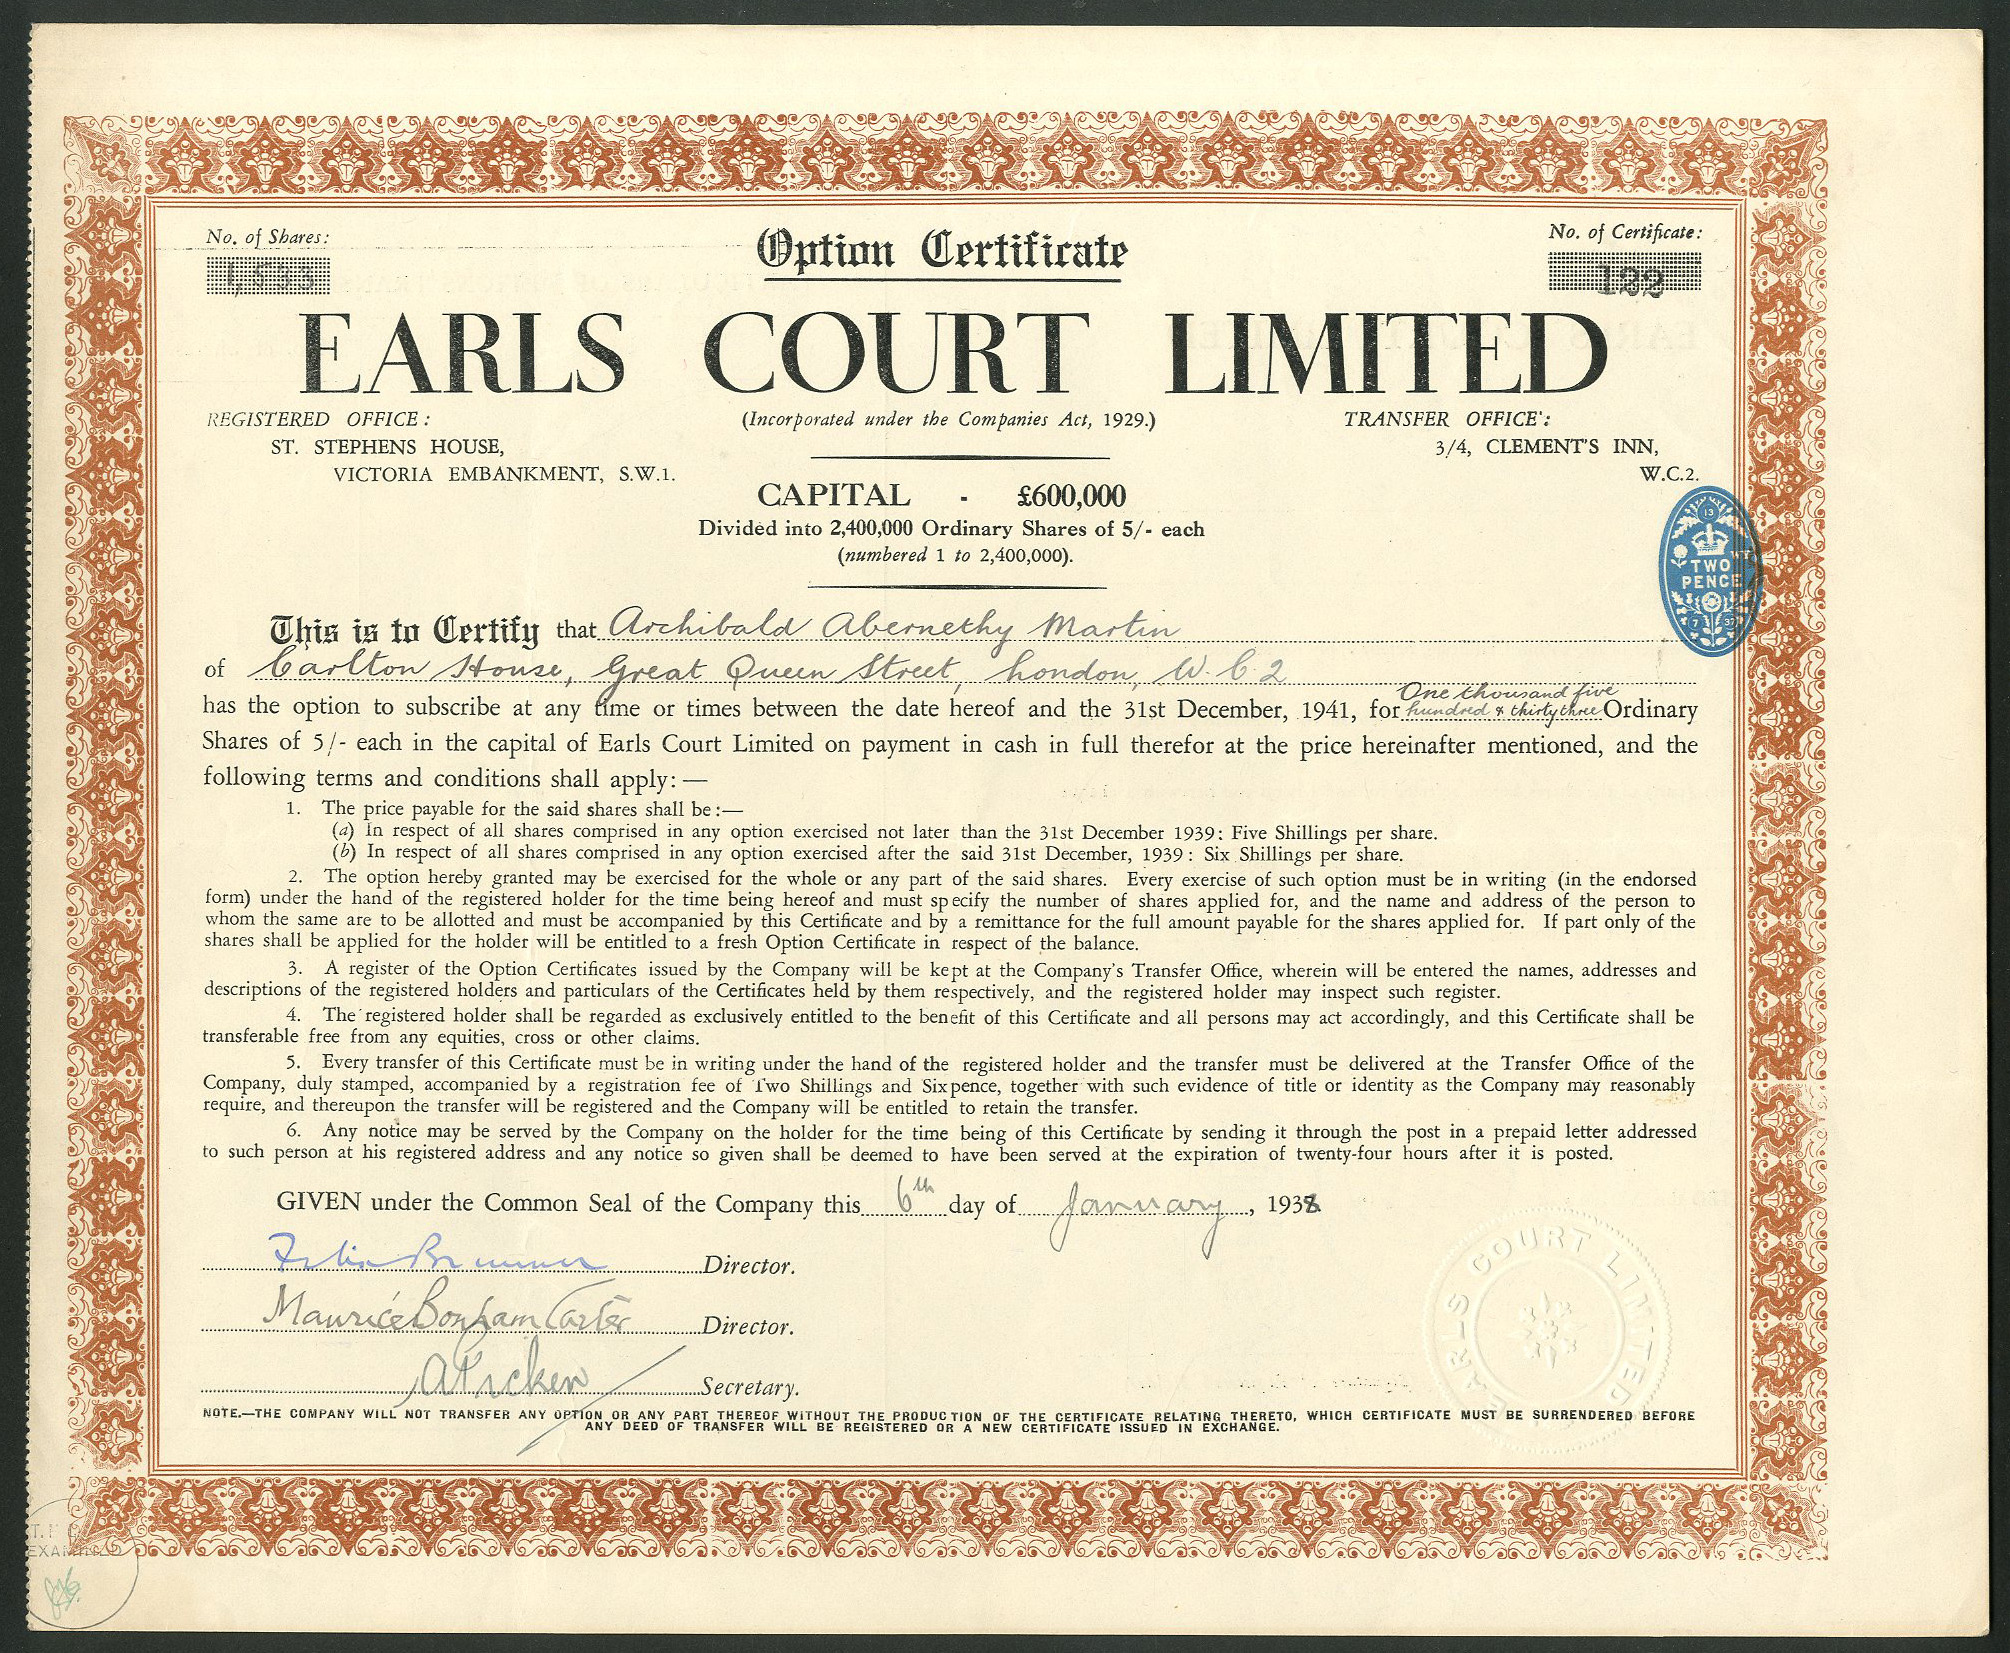 No. of Shares:
1,533
Option Certificate
No. of Certificate:
122
EARLS COURT LIMITED
REGISTERED OFFICE:
ST. STEPHENS HOUSE,
VICTORIA EMBANKMENT, S.W.1.
(Incorporated under the Companies Act, 1929.)
TRANSFER OFFICE:
3/4, CLEMENT'S INN,
W.C.2.
CAPITAL - £600,000
Divided into 2,400,000 Ordinary Shares of 5/- each
(numbered 1 to 2,400,000).
13
WY
TWO
PENCE
7 37
This is to Certify that Archibald Abernethy Martin
of Carlton House, Great Queen Street, London, W.C.2
has the option to subscribe at any time or times between the date hereof and the 31st December, 1941, for One thousand five hundred & thirty three Ordinary
Shares of 5/- each in the capital of Earls Court Limited on payment in cash in full therefor at the price hereinafter mentioned, and the
following terms and conditions shall apply:—
1. The price payable for the said shares shall be:—
(a) In respect of all shares comprised in any option exercised not later than the 31st December 1939: Five Shillings per share.
(b) In respect of all shares comprised in any option exercised after the said 31st December, 1939: Six Shillings per share.
2. The option hereby granted may be exercised for the whole or any part of the said shares. Every exercise of such option must be in writing (in the endorsed
form) under the hand of the registered holder for the time being hereof and must specify the number of shares applied for, and the name and address of the person to
whom the same are to be allotted and must be accompanied by this Certificate and by a remittance for the full amount payable for the shares applied for. If part only of the
shares shall be applied for the holder will be entitled to a fresh Option Certificate in respect of the balance.
3. A register of the Option Certificates issued by the Company will be kept at the Company's Transfer Office, wherein will be entered the names, addresses and
descriptions of the registered holders and particulars of the Certificates held by them respectively, and the registered holder may inspect such register.
4. The registered holder shall be regarded as exclusively entitled to the benefit of this Certificate and all persons may act accordingly, and this Certificate shall be
transferable free from any equities, cross or other claims.
5. Every transfer of this Certificate must be in writing under the hand of the registered holder and the transfer must be delivered at the Transfer Office of the
Company, duly stamped, accompanied by a registration fee of Two Shillings and Sixpence, together with such evidence of title or identity as the Company may reasonably
require, and thereupon the transfer will be registered and the Company will be entitled to retain the transfer.
6. Any notice may be served by the Company on the holder for the time being of this Certificate by sending it through the post in a prepaid letter addressed
to such person at his registered address and any notice so given shall be deemed to have been served at the expiration of twenty-four hours after it is posted.
GIVEN under the Common Seal of the Company this 6th day of January, 1938
Felix Brunner Director.
Maurice Bonham Carter Director.
Secretary.
EARLS COURT LIMITED
NOTE.—THE COMPANY WILL NOT TRANSFER ANY OPTION OR ANY PART THEREOF WITHOUT THE PRODUCTION OF THE CERTIFICATE RELATING THERETO, WHICH CERTIFICATE MUST BE SURRENDERED BEFORE
ANY DEED OF TRANSFER WILL BE REGISTERED OR A NEW CERTIFICATE ISSUED IN EXCHANGE.
EXAMINED